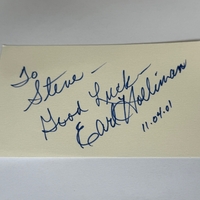 To
Steve —
Good Luck —
Earl Holliman
11.04.01